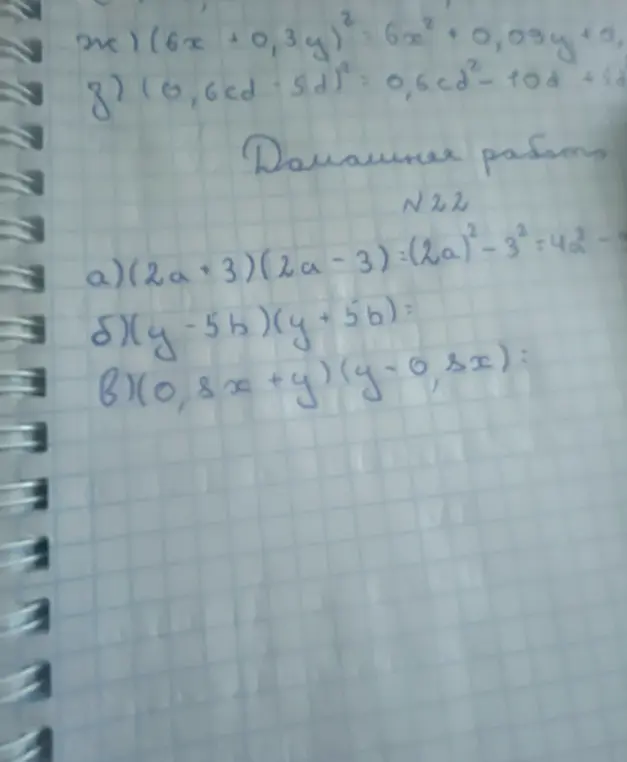 ж) (6x + 0,3y)² = 6x² + 0,09y + 0,
з) (0,6cd - 5d)² = 0,6cd² - 10d +
Домашняя работа
№22
а) (2a + 3)(2a - 3) = (2a)² - 3² = 4a² -
б) (y - 5b)(y + 5b) =
в) (0,8x + y)(y - 0,8x) =